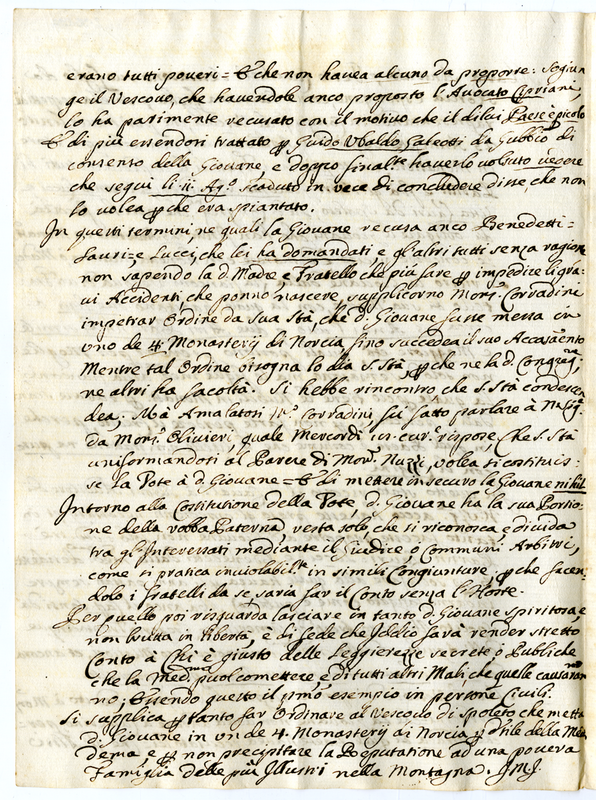 erano tutti poveri = E che non havea alcuno da proporre: Sogiun
ge il Vescovo, che havendole anco proposto l'Avocato Cipriani,
lo ha parimente recusato con il motivo che il di lui Paese è picolo
E di più essendosi trattato p Guido Ubaldo Galeotti da Gubbio di
consenso della Giovane e doppo finalte haverlo voluto vedere
che seguì li ii Ago scaduto in vece di concludere disse, che non
lo volea p che era spiantato.
In questi termini, ne quali la Giovane recusa anco Benedetti =
Lauri = e Lucci, che lei ha domandati, e gl'altri tutti senza ragione
non sapendo la d. Madre, e Fratello che più fare p impedire li gra
vi Accidenti, che ponno nascere, supplicorno Monr Corradini
impetrar Ordine da Sua Stà, che d. Giovane fusse messa in
uno de 4 Monasterij di Norcia fino succedea il suo Accasamento
Mentre tal Ordine bisogna lo dia S. Stà, p che ne la d. Congne,
ne altri ha facoltà. Si hebbe rincontro che S. Stà condescen
dea; Mà Amalatosi Corradini, fu fatto parlare à
da Monr Olivieri, quale Mercordi cur. rispose, Che S. Stà
uniformandosi al Parere di Monr Nuzzi, volea si costituis:
se la Dote à d. Giovane = E di mettere in securo la Giovane nihil
Intorno alla Costitutione della Dote, d. Giovane ha la sua Portio
ne della robba Paterna, resta solo che si riconosca e divida
tra gl'Interessati mediante il Giudice o Communi Arbitri,
come si pratica inviolabilte in simili Congiunture, p che facen
dolo i fratelli da se, saria far il Conto senza l'Hoste.
Per quello poi risguarda lasciare in tanto d. Giovane spiritosa, e
non brutta in libertà, è di fede che Iddio farà render stretto
Conto à Chi è giusto delle Leggierezze secrete o Publiche
che la Medma puol comettere, e di tutti altri Mali che quelle causaran
no; Essendo questo il pmo esempio in persone Civili.
Si supplica p tanto far Ordinare al Vescovo di Spoleto che metta
d. Giovane in un de 4 Monasterij di Norcia p della Me
dema e p non precipitare la Reputatione ad una povera
Famiglia delle più Illustri nella Montagna.